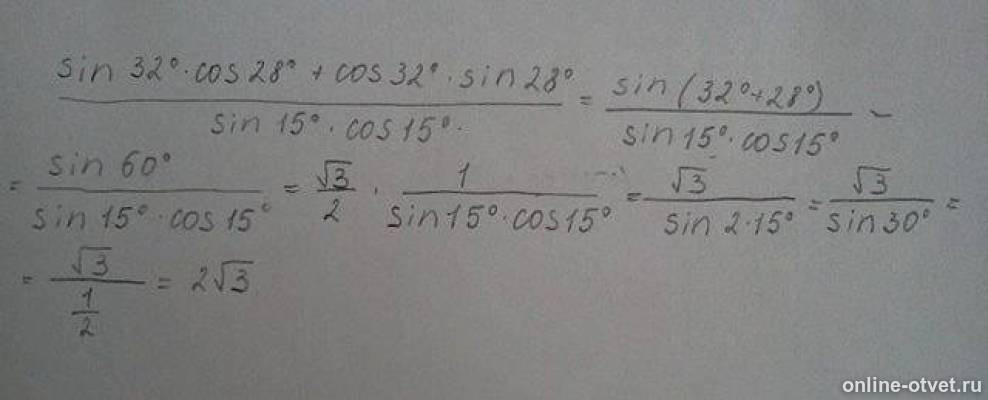 sin 32° · cos 28° + cos 32° · sin 28° / sin 15° · cos 15° · = sin (32° + 28°) / sin 15° · cos 15° -
= sin 60° / sin 15° · cos 15° = √3 / 2 · 1 / sin 15° · cos 15° = √3 / sin 2 · 15° = √3 / sin 30° =
= √3 / 1/2 = 2√3
online-otvet.ru